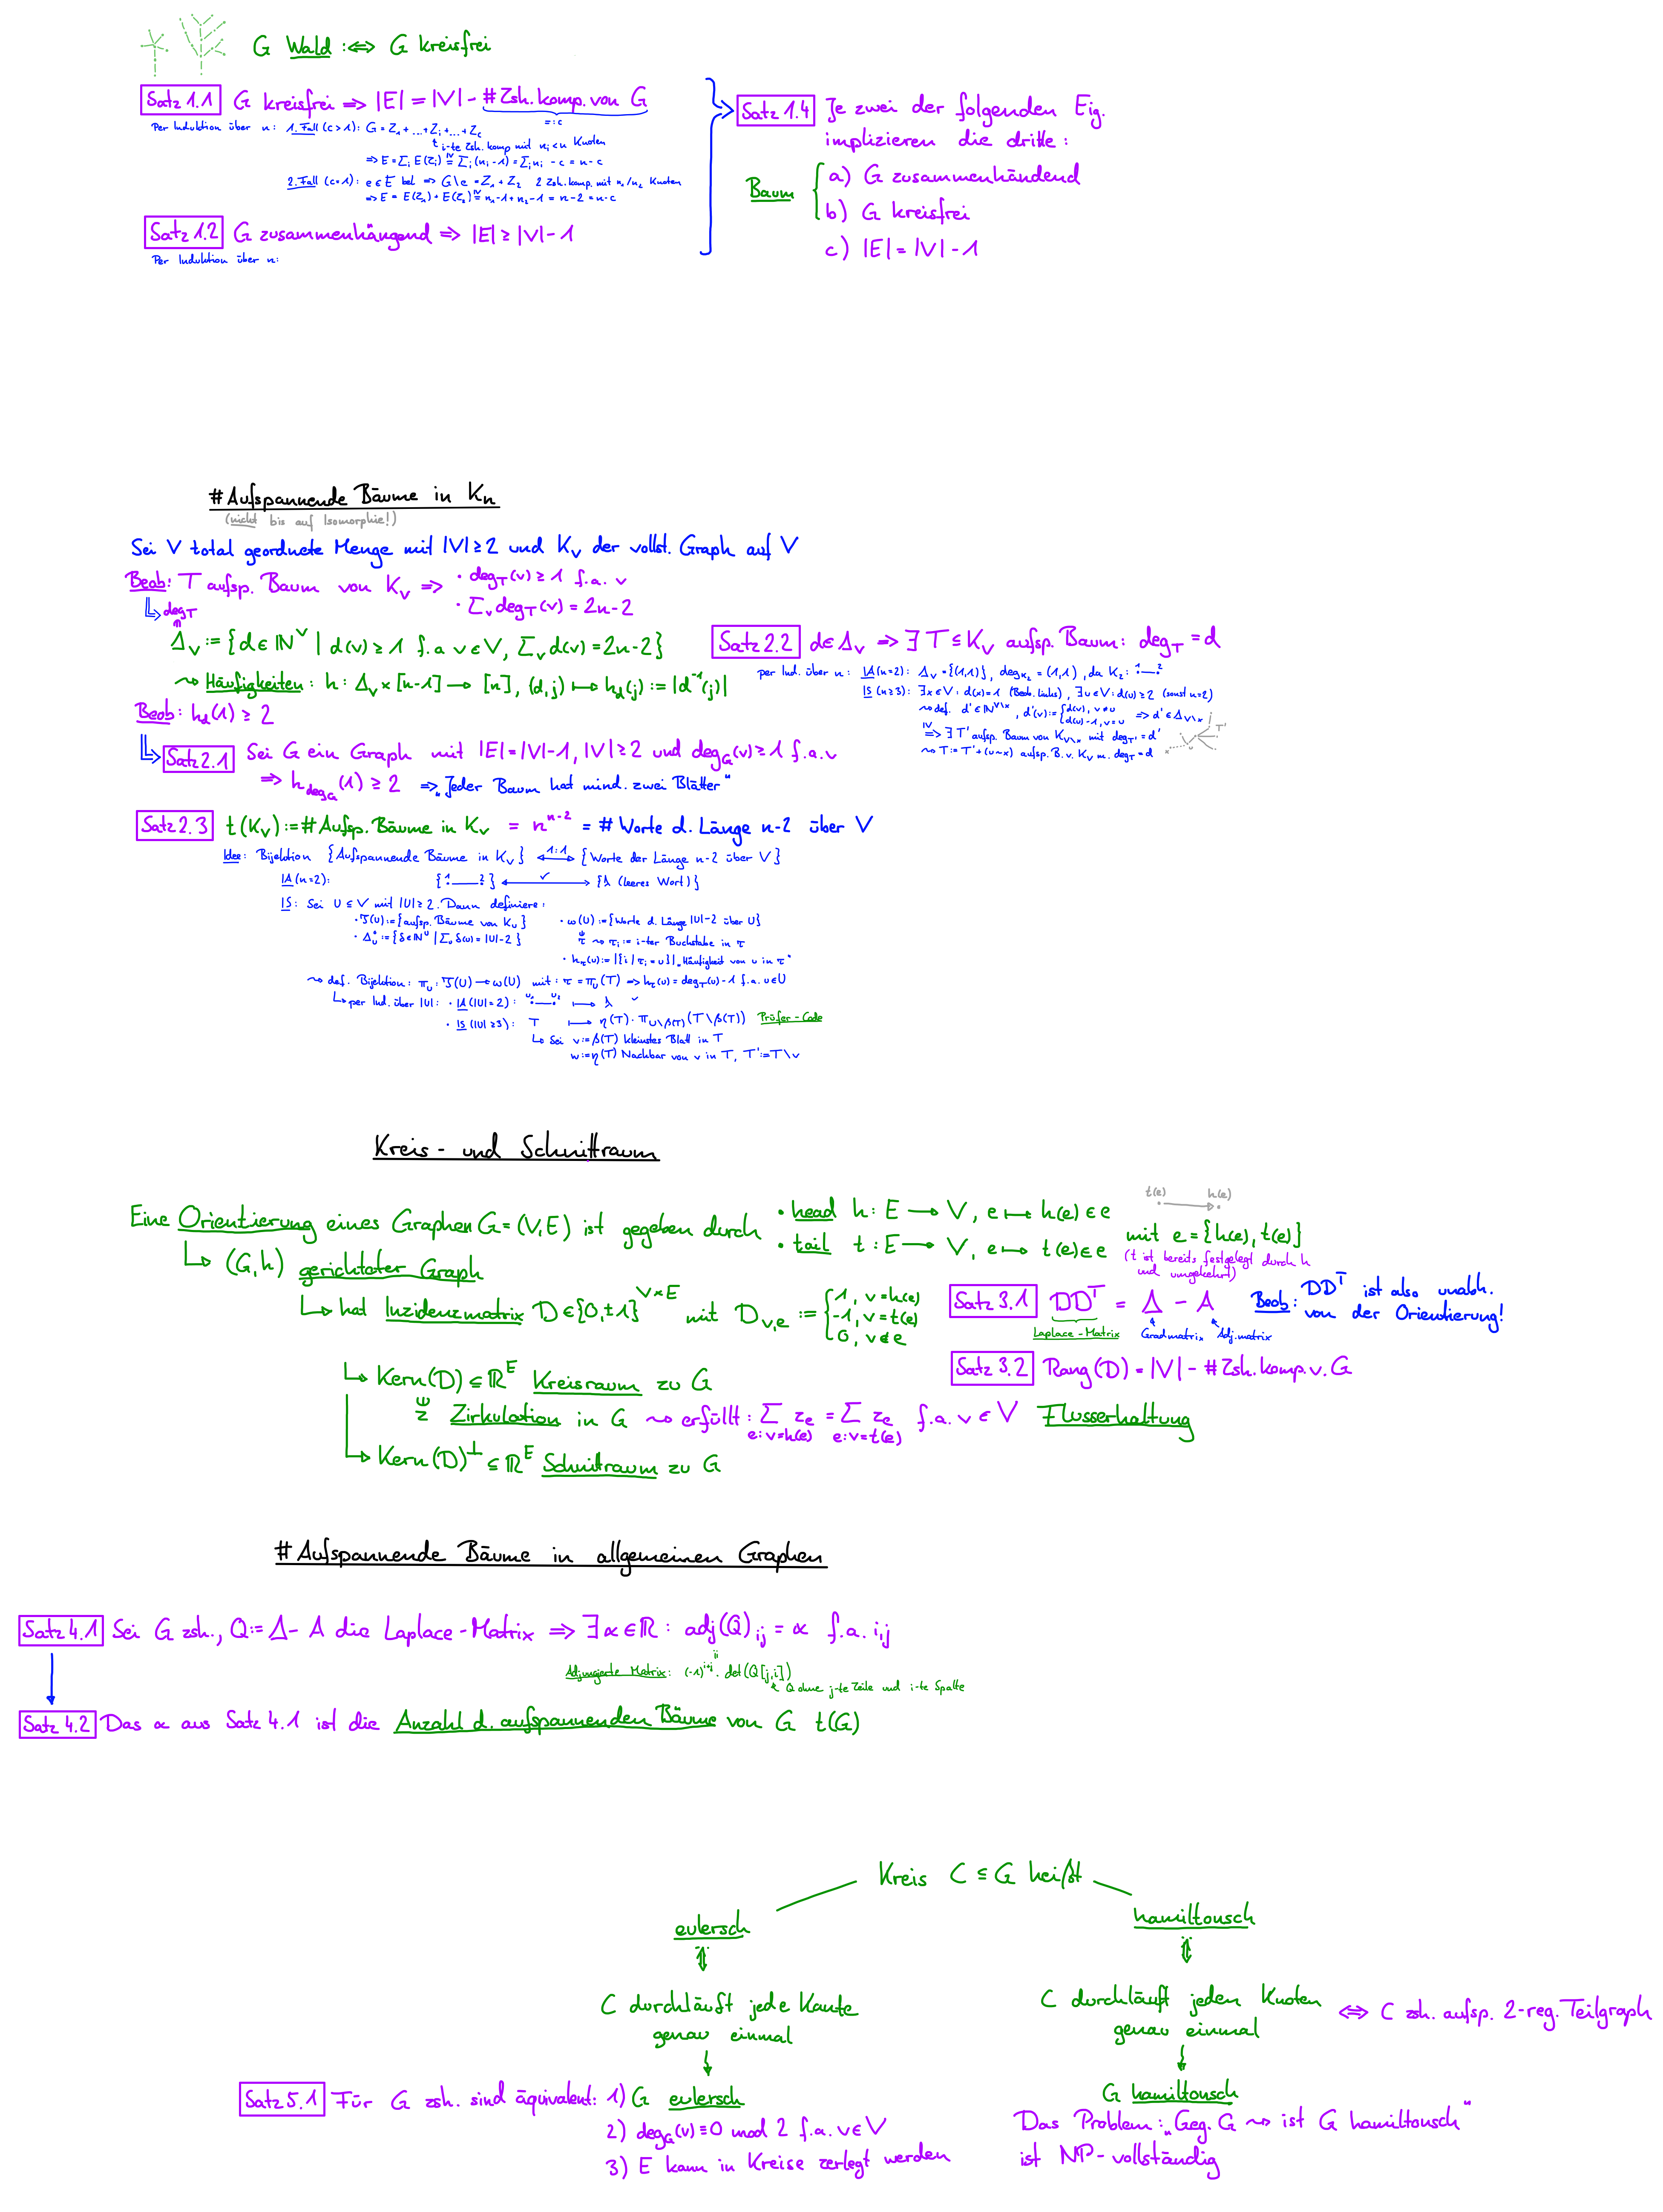 G Wald :⇔ G kreisfrei
Satz 1.1 G kreisfrei ⇒ |E| = |V| - #Zsh.komp. von G
=: c
Per Induktion über n: 1. Fall (c>1): G = Z₁ + ... + Zᵢ + ... + Z_c
i-te Zsh.komp mit nᵢ < n Knoten
⇒ E = Σᵢ E(Zᵢ) =^IV Σᵢ (nᵢ-1) = Σᵢ nᵢ - c = n - c
2. Fall (c=1): e ∈ E bel ⇒ G\e = Z₁ + Z₂ 2 Zsh.komp. mit n₁/n₂ Knoten
⇒ E = E(Z₁) + E(Z₂) =^IV n₁-1 + n₂-1 = n-2 = n-c
Satz 1.2 G zusammenhängend ⇒ |E| ≥ |V| - 1
Per Induktion über n:
Satz 1.4 Je zwei der folgenden Eig.
implizieren die dritte:
Baum
a) G zusammenhändend
b) G kreisfrei
c) |E| = |V| - 1
#Aufspannende Bäume in Kₙ
(nicht bis auf Isomorphie!)
Sei V total geordnete Menge mit |V| ≥ 2 und K_V der vollst. Graph auf V
Beob: T aufsp. Baum von K_V ⇒ · deg_T(v) ≥ 1 f.a. v
· Σ_v deg_T(v) = 2n-2
deg_T
Δ_V := {d ∈ ℕ^V | d(v) ≥ 1 f.a v ∈ V, Σ_v d(v) = 2n-2}
⇝ Häufigkeiten: h: Δ_V × [n-1] → [n], (d,j) ↦ h_d(j) := |d⁻¹(j)|
Beob: h_d(1) ≥ 2
Satz 2.1 Sei G ein Graph mit |E| = |V|-1, |V| ≥ 2 und deg_G(v) ≥ 1 f.a.v
⇒ h_deg_G(1) ≥ 2 ⇒ „Jeder Baum hat mind. zwei Blätter"
Satz 2.2 d ∈ Δ_V ⇒ ∃ T ⊆ K_V aufsp. Baum: deg_T = d
per Ind. über n: IA (n=2): Δ_V = {(1,1)}, deg_K₂ = (1,1), da K₂: 1 2
IS (n≥3): ∃x∈V: d(x)=1 (Beob. links), ∃u∈V: d(u) ≥ 2 (sonst n=2)
⇝ def. d' ∈ ℕ^V\x, d'(v) := { d(v), v≠u
d(u)-1, v=u ⇒ d' ∈ Δ_V\x
⇒^IV ∃ T' aufsp. Baum von K_V\x mit deg_T' = d'
⇝ T := T' + (u~x) aufsp. B. v. K_V m. deg_T = d
T'
Satz 2.3 t(K_V) := #Aufsp. Bäume in K_V = n^(n-2) = # Worte d. Länge n-2 über V
Idee: Bijektion {Aufspannende Bäume in K_V} ⟷ 1:1 {Worte der Länge n-2 über V}
IA (n=2): {1 2} ⟷ ✓ {λ (leeres Wort)}
IS: Sei U ⊆ V mit |U| ≥ 2. Dann definiere:
· 𝒯(U) := {aufsp. Bäume von K_U} · ω(U) := {Worte d. Länge |U|-2 über U}
· Δ_U° := {δ ∈ ℕ^U | Σ_u δ(u) = |U|-2} τ ⇝ τᵢ := i-ter Buchstabe in τ
· h_τ(u) := |{i | τᵢ = u}| „Häufigkeit von u in τ"
⇝ def. Bijektion: π_U: 𝒯(U) → ω(U) mit: τ = π_U(T) ⇒ h_τ(u) = deg_T(u) - 1 f.a. u∈U
per Ind. über |U|: · IA (|U|=2): u₁ u₂ ↦ λ ✓
· IS (|U| ≥ 3): T ↦ η(T) · π_U\β(T) (T\β(T)) Prüfer-Code
Sei v := β(T) kleinstes Blatt in T
w := η(T) Nachbar von v in T, T' := T\v
Kreis- und Schnittraum
Eine Orientierung eines Graphen G = (V,E) ist gegeben durch
• head h: E → V, e ↦ h(e) ∈ e
• tail t: E → V, e ↦ t(e) ∈ e
mit e = {h(e), t(e)}
t(e) h(e)
(t ist bereits festgelegt durch h
und umgekehrt)
(G,h) gerichteter Graph
hat Inzidenzmatrix D ∈ {0,±1}^(V×E) mit D_v,e := { 1, v = h(e)
-1, v = t(e)
0, v ∉ e
Satz 3.1 DDᵀ = Δ - A
Laplace-Matrix Gradmatrix Adj.matrix
Beob: DDᵀ ist also unabh.
von der Orientierung!
Satz 3.2 Rang(D) = |V| - #Zsh.komp.v. G
Kern(D) ⊆ ℝ^E Kreisraum zu G
z Zirkulation in G ⇝ erfüllt: Σ_{e: v=h(e)} z_e = Σ_{e: v=t(e)} z_e f.a. v ∈ V Flusserhaltung
Kern(D)^⊥ ⊆ ℝ^E Schnittraum zu G
#Aufspannende Bäume in allgemeinen Graphen
Satz 4.1 Sei G zsh., Q := Δ - A die Laplace-Matrix ⇒ ∃ α ∈ ℝ: adj(Q)_ij = α f.a. i,j
Adjungierte Matrix: (-1)^(i+j) · det(Q[j,i])
Q ohne j-te Zeile und i-te Spalte
Satz 4.2 Das α aus Satz 4.1 ist die Anzahl d. aufspannenden Bäume von G t(G)
Kreis C ⊆ G heißt
eulersch
hamiltonsch
C durchläuft jede Kante
genau einmal
C durchläuft jeden Knoten
genau einmal
⇔ C zsh. aufsp. 2-reg. Teilgraph
Satz 5.1 Für G zsh. sind äquivalent: 1) G eulersch
2) deg_G(v) ≡ 0 mod 2 f.a. v∈V
3) E kann in Kreise zerlegt werden
G hamiltonsch
Das Problem: „Geg. G ⇝ ist G hamiltonsch"
ist NP-vollständig